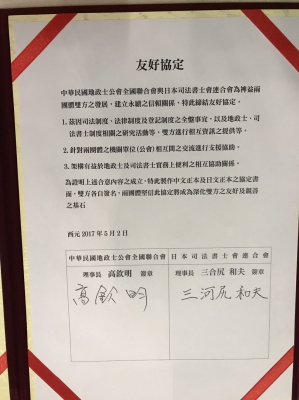 友好協定
中華民國地政士公會全國聯合會與日本司法書士會連合會為裨益兩
團體雙方之發展、建立永續之信賴關係,特此締結友好協定。
1.茲因司法制度、法律制度及登記制度之全盤事宜,以及地政士、司
法書士制度相關之研究活動等,雙方進行相互資訊之提供等。
2.針對兩團體之機關單位(公會)相互間之交流進行支援協助。
3.架構有益於地政士及司法書士實務上便利之相互協助關係。
為證明上述合意內容之成立、特此製作中文正本及日文正本之協定書
面,雙方各自簽名,兩團體堅信此協定將成為深化雙方之友好及親善
之基石
西元 2017 年 5 月 2 日
中華民國地政士公會全國聯合會
日本司法書士會連合會
理事長 高欽明 簽章
理事長 三合尻 和夫 簽章
高欽明
三河尻和夫